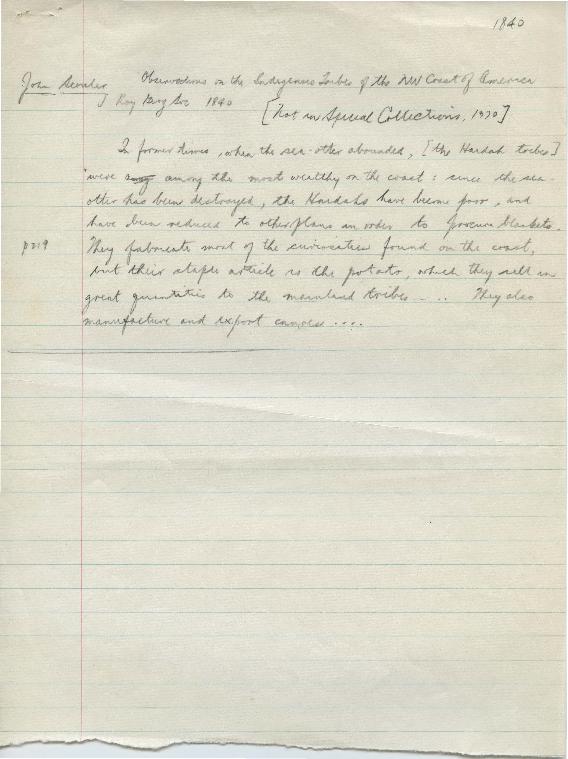 1840
John Scouler Observations on the Indigenous Tribes of the NW Coast of America
Roy Geog Soc 1840 [Not in Special Collections, 1970]
In former times, when the sea-otter abounded, [the Haidah tribes]
were among the most wealthy on the coast: since the sea-
otter has been destroyed, the Haidahs have become poor, and
have been reduced to other plans in order to procure blankets.
p219 They fabricate most of the curiosities found on the coast,
but their staple article is the potato, which they sell in
great quantities to the mainland tribes .... They also
manufacture and export canoes ....